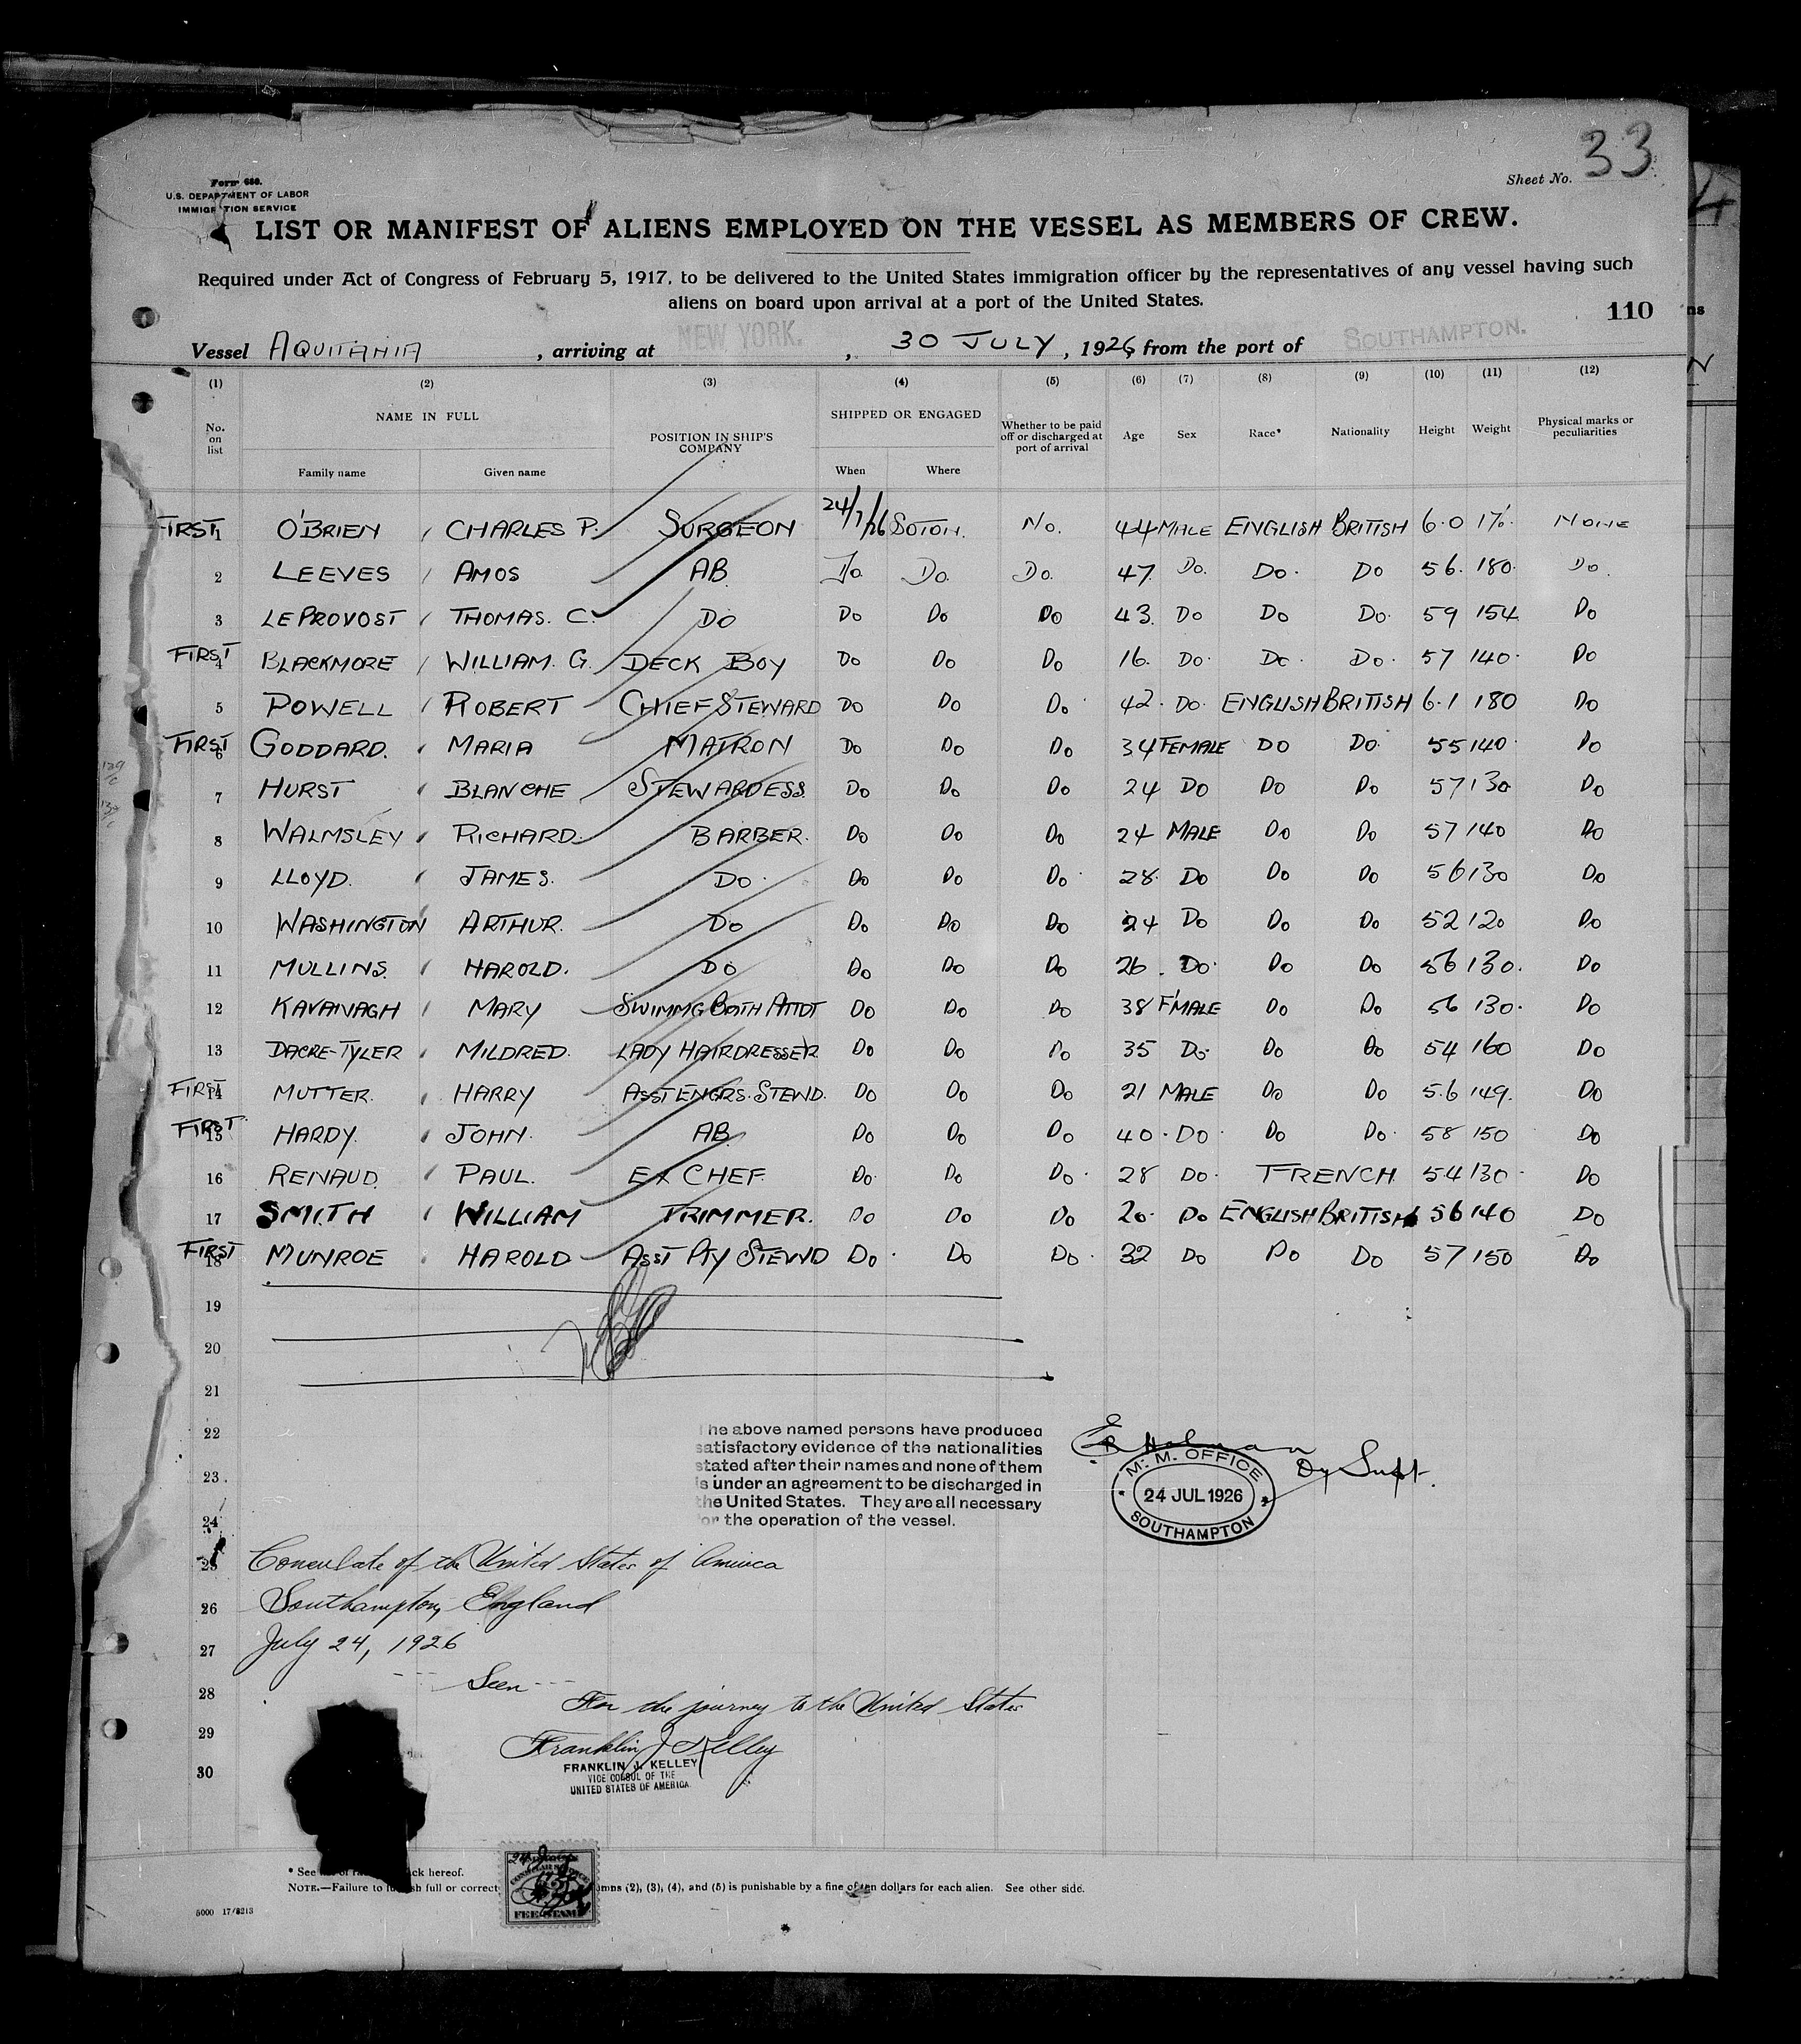 33
Sheet No.
Form 680.
U.S. DEPARTMENT OF LABOR
IMMIGRATION SERVICE
LIST OR MANIFEST OF ALIENS EMPLOYED ON THE VESSEL AS MEMBERS OF CREW.
Required under Act of Congress of February 5, 1917, to be delivered to the United States immigration officer by the representatives of any vessel having such
aliens on board upon arrival at a port of the United States.
110
Vessel AQUITANIA, arriving at NEW YORK., 30 JULY, 1926 from the port of SOUTHAMPTON.
(1) (2) (3) (4) (5) (6) (7) (8) (9) (10) (11) (12)
No. on list NAME IN FULL POSITION IN SHIP'S COMPANY SHIPPED OR ENGAGED Whether to be paid off or discharged at port of arrival Age Sex Race* Nationality Height Weight Physical marks or peculiarities
Family name Given name When Where
FIRST 1 O'BRIEN CHARLES P. SURGEON 24/7/26 SOTON. No. 44 MALE ENGLISH BRITISH 6.0 NONE
2 LEEVES AMOS AB. Do. Do. Do. 47 Do. Do. Do 56. 180. Do.
3 LEPROVOST THOMAS. C. DO Do Do Do 43. Do Do Do. 59 154 Do
FIRST 4 BLACKMORE WILLIAM. G. DECK BOY Do Do Do 16. Do. Do. Do. 57 140. Do
5 POWELL ROBERT CHIEF STEWARD Do Do Do 42. Do. ENGLISH BRITISH 6.1 180 Do
FIRST 6 GODDARD. MARIA MATRON Do Do Do 34 FEMALE DO Do. 55 140. Do
7 HURST BLANCHE STEWARDESS. Do Do Do 24 Do Do Do 57 130 Do
8 WALMSLEY RICHARD. BARBER. Do Do Do 24 MALE Do Do 57 140 Do
9 LLOYD. JAMES. Do. Do Do Do. 28. Do Do Do 56 130 Do
10 WASHINGTON ARTHUR. Do Do Do Do 24 Do Do Do 52 120 Do
11 MULLINS. HAROLD. Do Do Do Do 26. Do. Do Do 56 130. Do
12 KAVANAGH MARY SWIMMG BATH ATTDT Do Do Do 38 F'MALE Do Do 56 130. Do
13 DACRE-TYLER MILDRED. LADY HAIRDRESSER Do Do Do 35 Do. Do Do 54 160 Do
FIRST 14 MUTTER. HARRY ASST ENGRS. STEWD. Do Do Do 21 MALE Do Do 5.6 149. Do
FIRST. 15 HARDY. JOHN. AB Do Do Do 40. Do. Do Do. 58 150 Do
16 RENAUD. PAUL. EX CHEF. Do. Do Do. 28 Do. FRENCH. 5.4 130. Do
17 SMITH WILLIAM TRIMMER. Do Do Do 20. Do ENGLISH BRITISH 56 140 Do
FIRST 18 MUNROE HAROLD ASST PTY STEWD Do. Do Do. 32 Do Do Do 57 150 Do
19
20
21
22
23
24
The above named persons have produced
satisfactory evidence of the nationalities
stated after their names and none of them
is under an agreement to be discharged in
the United States. They are all necessary
for the operation of the vessel.
Holman Dy Supt.
M. M. OFFICE
24 JUL 1926
SOUTHAMPTON
25 Consulate of the United States of America
26 Southampton, England
27 July 24, 1926
Seen
28 For the journey to the United States
29 Franklin J Kelley
FRANKLIN J. KELLEY
30 VICE CONSUL OF THE
UNITED STATES OF AMERICA
* See of hereof.
NOTE.—Failure to full or correct (2), (3), (4), and (5) is punishable by a fine of ten dollars for each alien. See other side.
FEE STAMP
5000 17/8213